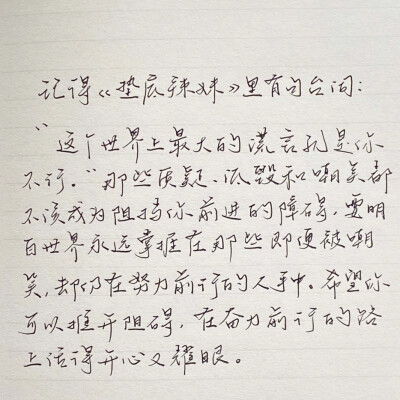 记得《垫底辣妹》里有句台词:
“这个世界上最大的谎言就是你
不行.”那些质疑、诋毁和嘲笑都
不该成为阻挡你前进的障碍.要明
白世界永远掌握在那些即便被嘲
笑,却仍在努力前行的人手中。希望你
可以推开阻碍,在奋力前行的路
上活得开心又耀眼。